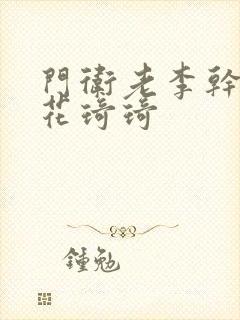 門衛老李幹
花琦琦
鍾勉